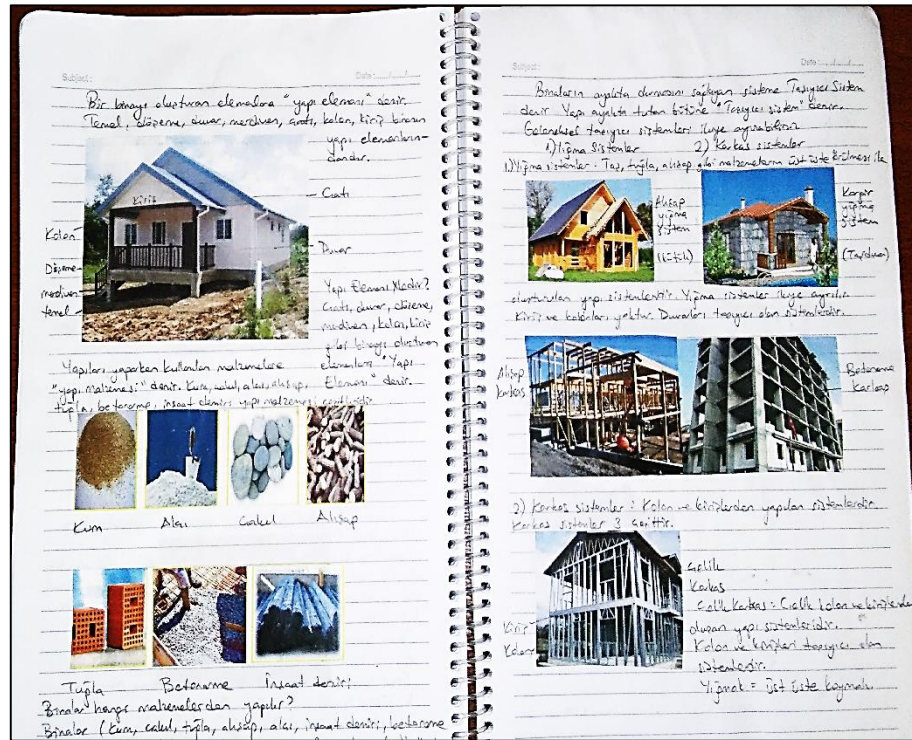 Subject:
Date: .../.../...
Bir binayı oluşturan elemanlara "yapı elemanı" denir.
Temel, döşeme, duvar, merdiven, çatı, kolon, kiriş binanın
yapı elemanların-
dandır.
Kiriş
Çatı
Kolon
Duvar
Döşeme
merdiven
temel
Yapı Elemanı Nedir?
Çatı, duvar, döşeme,
merdiven, kolon, kiriş
gibi binayı oluşturan
elemanlara "Yapı
Elemanı" denir.
Yapıları yaparken kullanılan malzemelere
"yapı malzemesi" denir. Kum, çakıl, alçı, ahşap,
tuğla, betonarme, inşaat demiri yapı malzemesi çeşitleridir.
Kum Alçı Çakıl Ahşap
Tuğla Betonarme İnşaat demiri
Binalar hangi malzemelerden yapılır?
Binalar (kum, çakıl, tuğla, ahşap, alçı, inşaat demiri, betonarme
Subject:
Date: .../.../...
Binaların ayakta durmasını sağlayan sisteme Taşıyıcı Sistem
denir. Yapı ayakta tutan bütüne "Taşıyıcı sistem" denir.
Geleneksel taşıyıcı sistemleri ikiye ayırabiliriz
1) Yığma Sistemler 2) Karkas sistemler
1) Yığma sistemler: Taş, tuğla, ahşap gibi malzemelerin üst üste örülmesi ile
Ahşap
yığma
sistem
(kütük)
Kargir
yığma
sistem
(Taşduvar)
oluşturulan yapı sistemleridir. Yığma sistemler ikiye ayrılır.
Kiriş ve kolonları yoktur. Duvarları taşıyıcı olan sistemlerdir.
Ahşap
karkas
Betonarme
karkas
2) Karkas sistemler: Kolon ve kirişlerden yapılan sistemlerdir.
Karkas sistemler 3 çeşittir.
Çelik
Karkas
Çelik Karkas = Çelik kolon ve kirişlerden
oluşan yapı sistemleridir.
Kiriş
Kolon
Kolon ve kirişleri taşıyıcı olan
sistemlerdir.
Yığmak = üst üste koymak